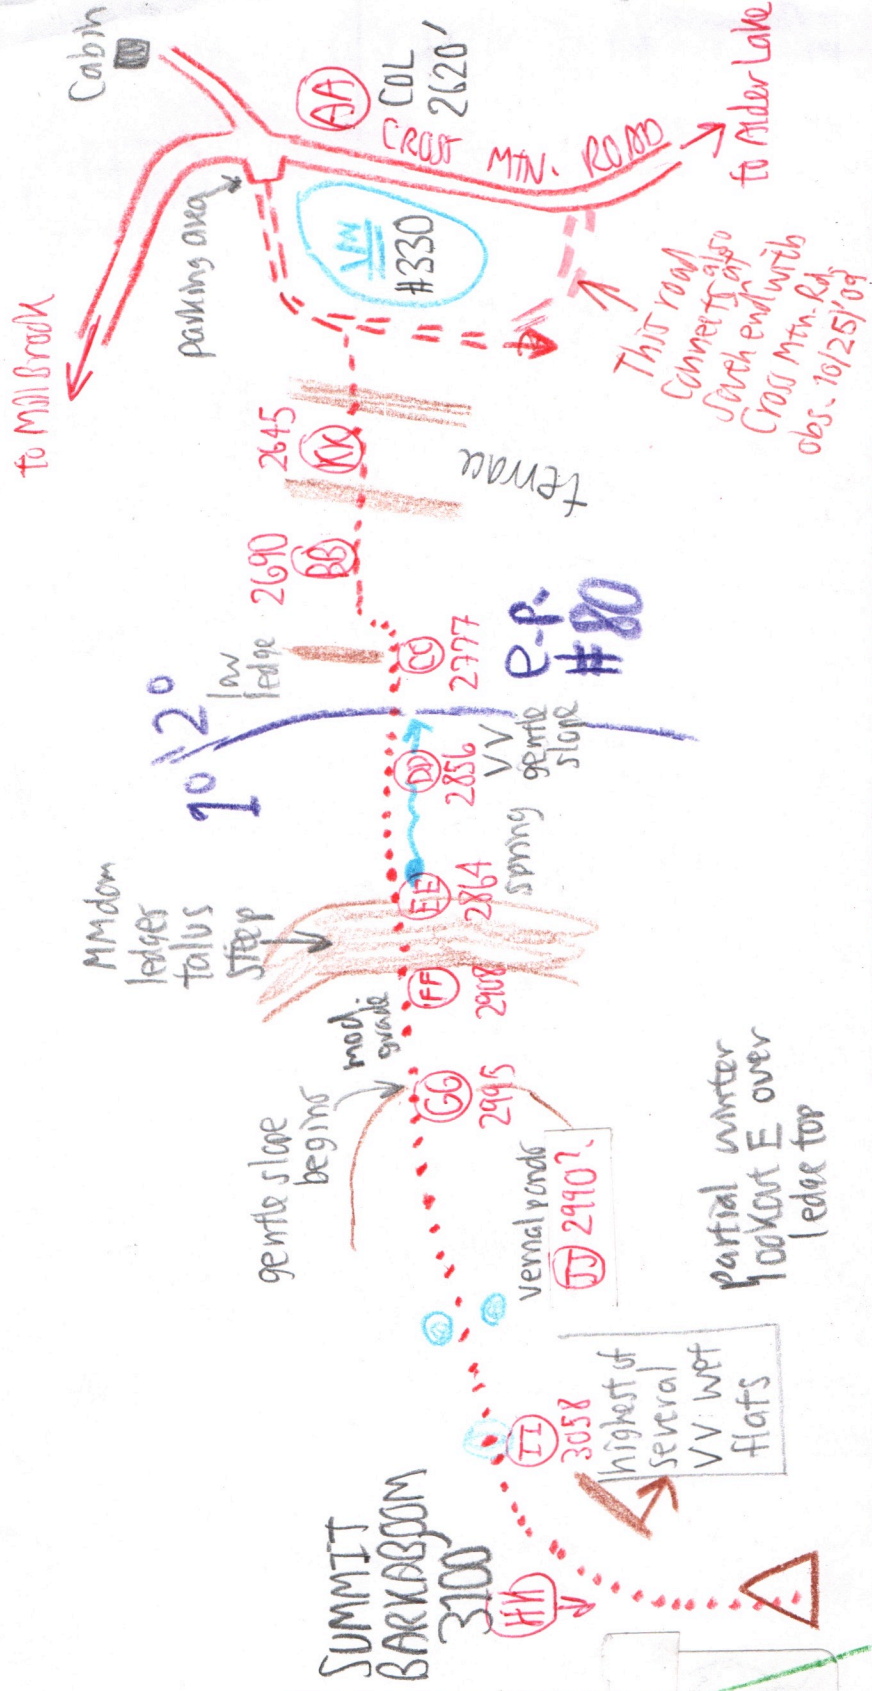 Cabin
AA
COL
2620'
CROSS MTN. ROAD
to Alder Lake
to Mill Brook
parking area
VM
#330
This road
connects also
at
South end with
Cross Mtn. Rd.
obs. 10/25/09
2645
KK
terrace
2690
BB
low
ledge
CC
2777
e.p.
#80
2°
1°
DD
2856
VV
gentle
slope
spring
EE
2864
MMdom
ledger
talus
steep
FF
2908
mod.
grade
gentle slope
begins
GG
2995
vernal ponds
JJ 2990?
Partial winter
lookout E over
ledge top
II
3058
highest of
several
VV. wet
flats
SUMMIT
BARKABOOM
3100
HH